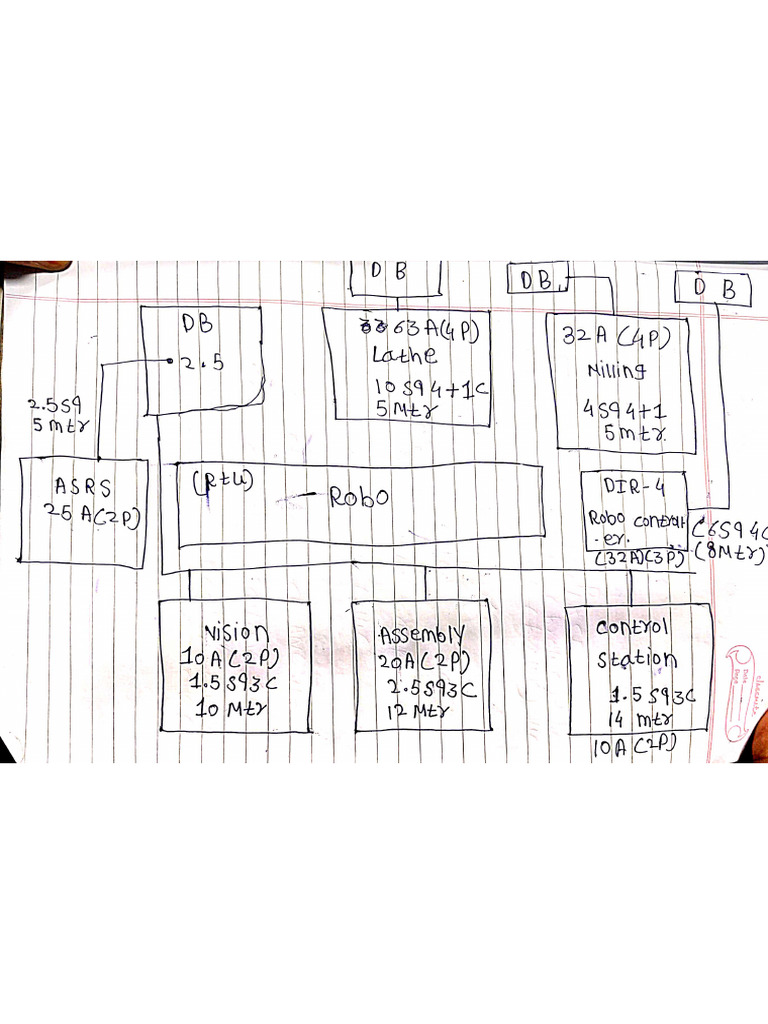 D B
DB
D B
DB
2.5
63A(4P)
Lathe
10 sq 4+1C
5 Mtr
32A (4P)
Milling
4 sq 4+1
5 mtr.
2.5 sq
5 mtr
ASRS
25 A(2P)
(RTU)
Robo
DIR-4
Robo controll
-er.
(32A)(3P)
(6 sq 4C
(8 Mtr)
Vision
10A (2P)
1.5 sq 3C
10 Mtr
Assembly
20A(2P)
2.5 sq 3C
12 Mtr
Control
Station
1.5 sq 3C
14 mtr
10A (2P)
classmate
Date
Page